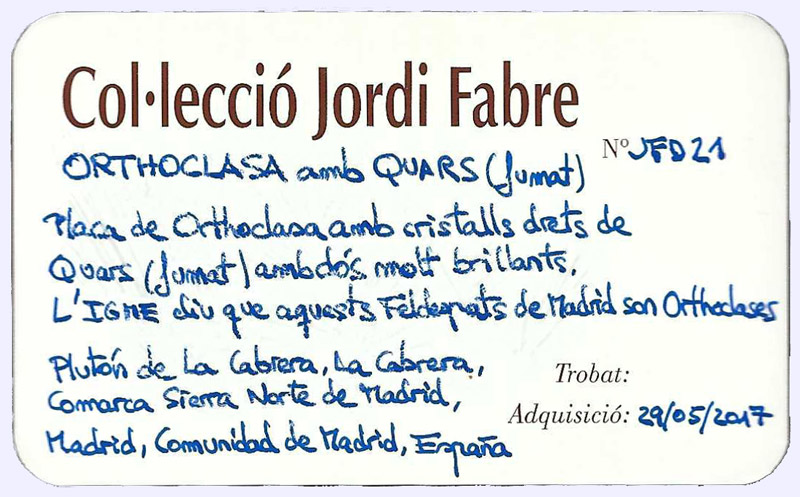 Col·lecció Jordi Fabre
Nº JFD21
ORTHOCLASA amb QUARS (fumat)
Placa de Orthoclasa amb cristalls drets de
Quars (fumat) ambdós molt brillants.
L'IGME diu que aquests Feldespats de Madrid son Orthoclases
Plutón de La Cabrera, La Cabrera,
Comarca Sierra Norte de Madrid,
Madrid, Comunidad de Madrid, España
Trobat:
Adquisició: 29/05/2017